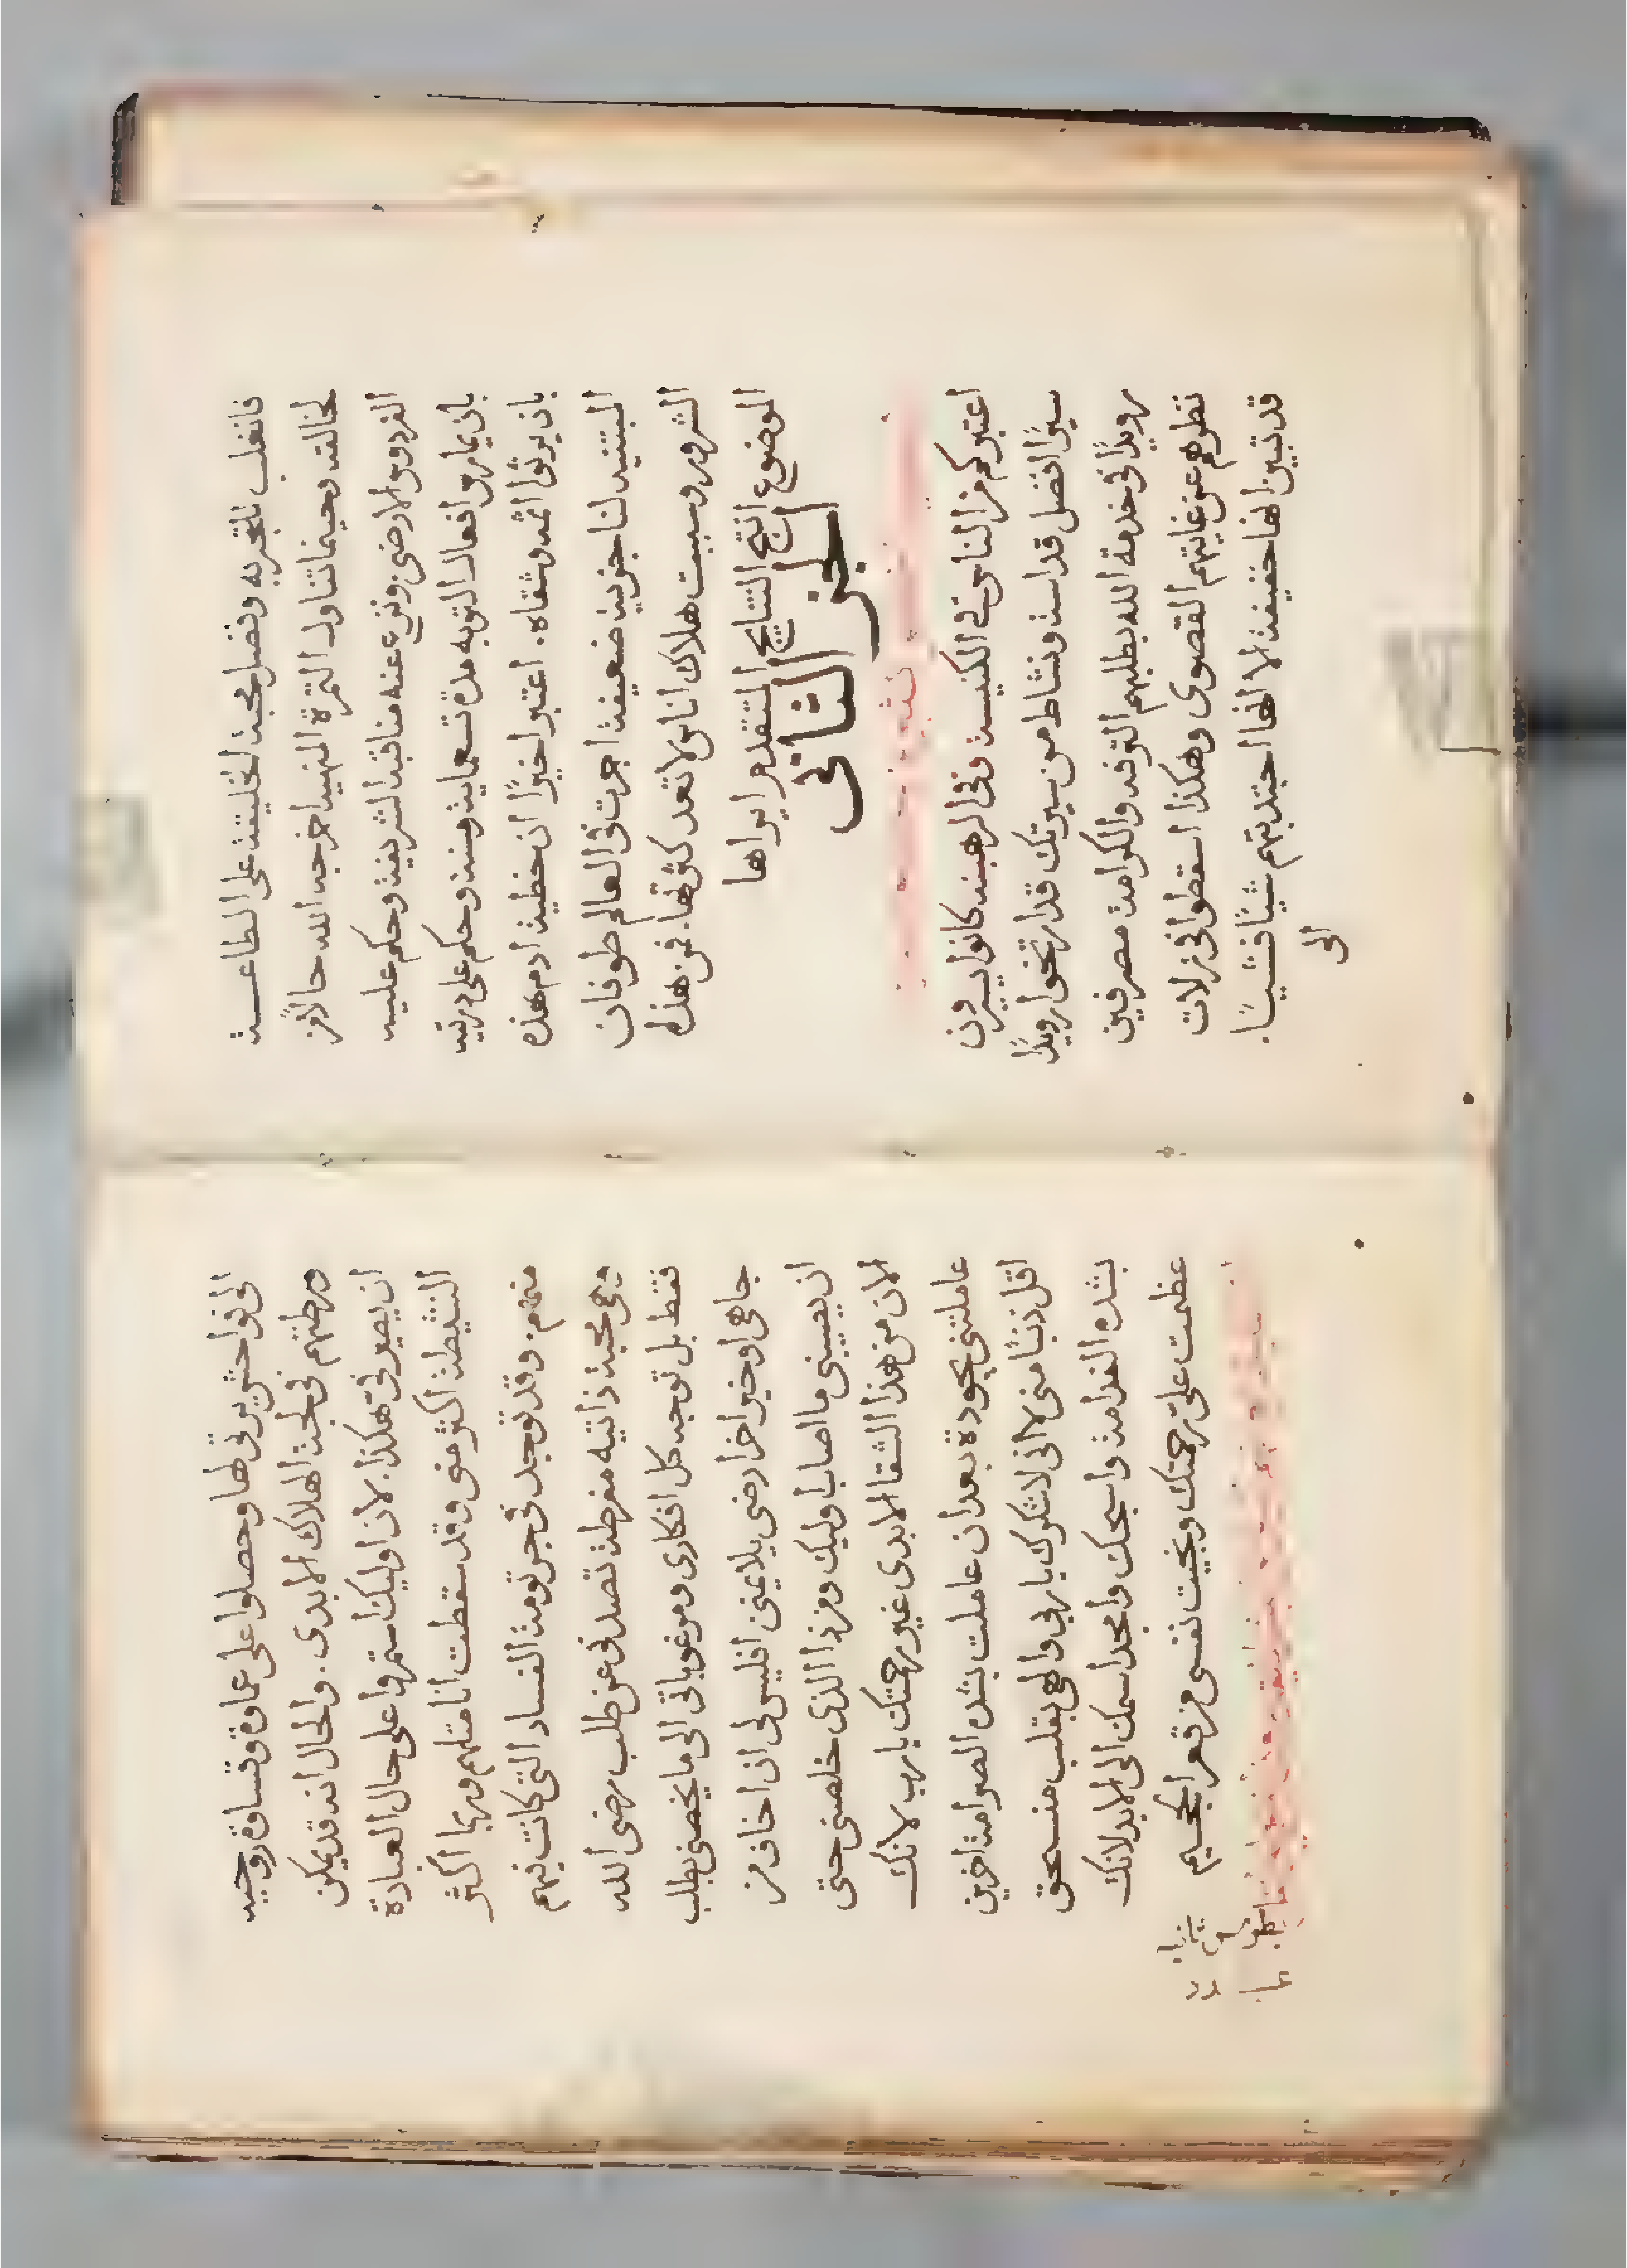 فانغلب بالتجربه وفضل محبة الخليقة على الطاعـــة
لخالقه وحينما تناول الثمرة المنهيه اخرجه الله حالًا من
الفردوس الارضي ونزع عنه مناقبه الشريفة وحكم عليه
بان يمارس افعال التوبه مدة تسعماية سنة وحكم على ذريته
بان يرثوا اثمه وشقاه. اعتبر اخيرًا ان خطية ادم هذه
المبتنيه لنا جزييه ضعيفة اجرت في العالم طوفان
الشرور وسببت هلاك اناس لا تعد كثرتها. فمن هذه
الموضوع انتج النتايج المتقدم ايرادها
الجز الثاني
اعتبر كم من الناس في الكنيسة وفي الرهبنه كانوا يسيرون
سيرًا افضل قداسة ونشاط من سيرتك قد ارتخوا رويدًا
رويدًا في خدمة الله بطلبهم الترفه والكرامة مصرفين
نظرهم عن غايتهم القصوى وهكذا اسقطوا في زلات
قد تبين انها خفيفة الا انها اجتذبتهم شيًا فشيـــًا.
الى
الى فواحش يرثى لها وحصلوا على عماوة وقساوة روحيه
ورطتهم في لجة الهلاك الابدى. والحال انه قد يمكن
ان يصير في هكذا. لان اوليك استمروا على حال العبادة
النشيطة اكثر مني وقد سقطت انا مثلهم وربما اكثر
منهم. وقد توجد في جرثومة الفساد التي كانت فيهم
وهي محبة ذاتيه مفرطة تصدني عن طلب رضى الله
فقط بل توجه كل افكاري ومرغوباتي الى ما يخصني بطلب
جاهي او خير اخر ارضي يلايمني افليس لي ان اخاف من
ان يصيبني ما اصاب اوليك ومن ذا الذى خلصني حتى
الان من هذا الشقا الابدى غير رحمتك يا رب لانك
عاملتني بجودة بعد ان عاملت بشده الصرامة اخرين
اقل ذنبًا مني لاني لاشكرك يا ربي والهي بقلب منسحق
بشده الندامة واسبحك وامجد اسمك الى الابد لانك
عظمت علي رحمتك ونجيت نفسي من قعر الجحيم